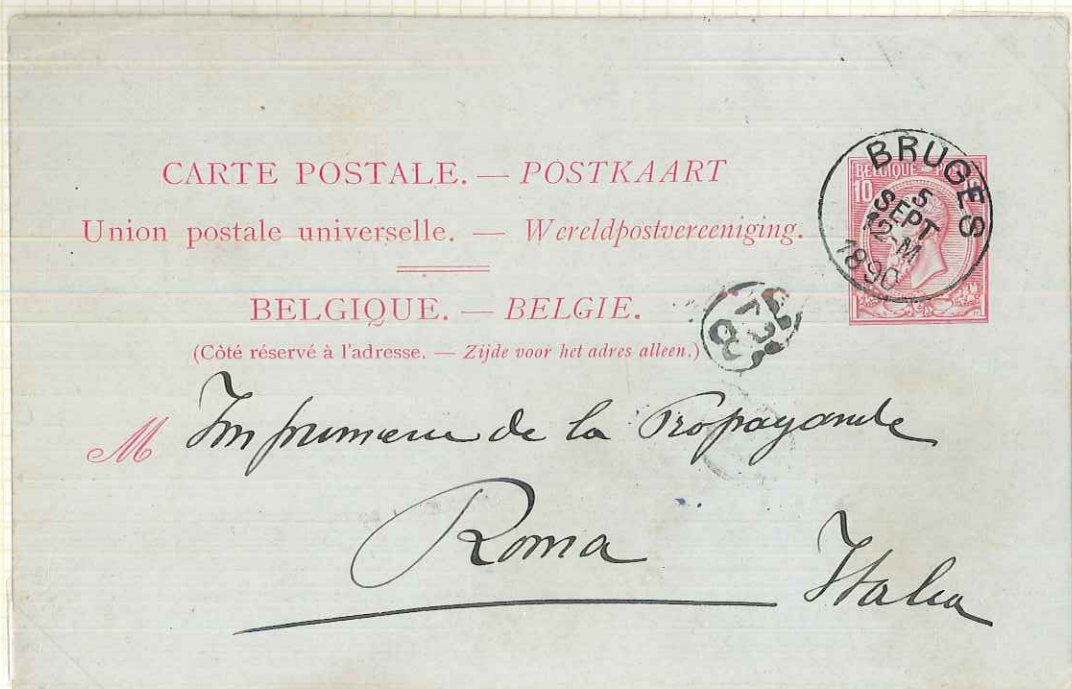 CARTE POSTALE. — POSTKAART
Union postale universelle. — Wereldpostvereeniging.
BELGIQUE. — BELGIE.
(Côté réservé à l'adresse. — Zijde voor het adres alleen.)
BELGIQUE
10
BRUGES
5
SEPT
12-M
1890
M Imprimerie de la Propagande
Roma
Italia